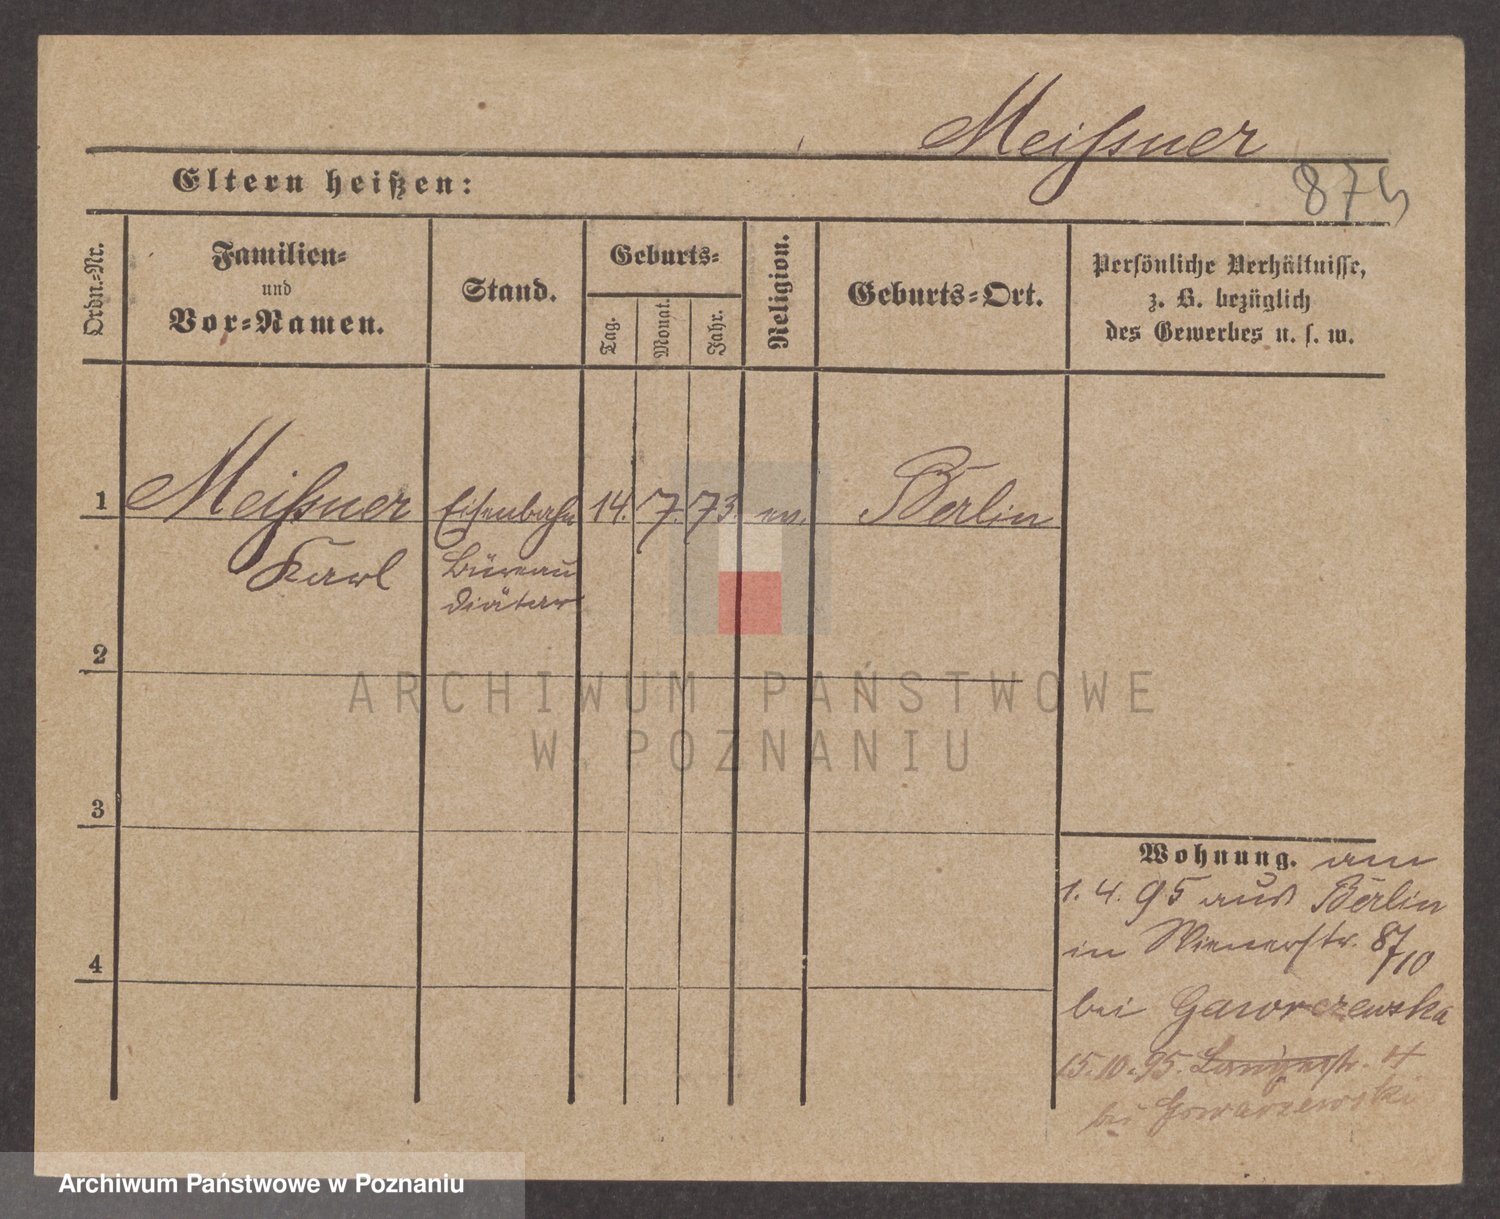 Meißner
Eltern heißen:
874
Ordn.-Nr.
Familien-
und
Vor-Namen.
Stand.
Geburts-
Tag.
Monat.
Jahr.
Religion.
Geburts-Ort.
Persönliche Verhältnisse,
z. B. bezüglich
des Gewerbes u. s. w.
1
Meißner
Karl
Eisenbahn
Büreau
Diätar
14.
7.
73.
ev.
Berlin
2
3
4
ARCHIWUM PAŃSTWOWE
W POZNANIU
Wohnung. am
1. 4. 95 aus Berlin
in Wienerstr. 8/10
bei Gaworczewska
15.10.95. Langestr. 4
bei
Archiwum Państwowe w Poznaniu